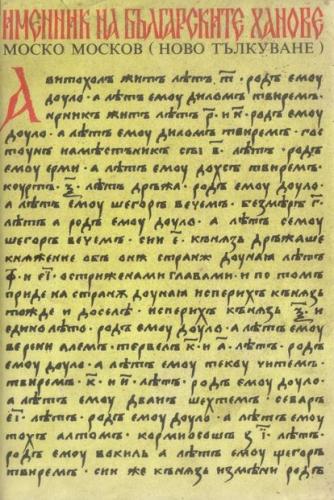 ИМЕННИК НА БЪЛГАРСКИТЕ ХАНОВЕ
МОСКО МОСКОВ ( НОВО ТЪЛКУВАНЕ )
Авитохолъ житъ лѣтъ. т҃ · родъ емоу
доуло · а лѣтъ емоу диломъ твиремъ ·
ирникъ житъ лѣтъ р҃ · и н҃ · родъ емоу
доуло · а лѣтъ емоу диломъ твиремъ · гос
тоунъ намѣстьникъ сьі в҃ · лѣтъ · родъ
емоу ерми · а лѣтъ емоу дохсъ твиремъ ·
коуртъ · ѯ҃ · лѣтъ дръжа · родъ емоу доуло ·
а лѣтъ емоу шегоръ вечемъ · безмѣръ г҃ ·
лѣтъ а родъ емоу доуло · а лѣтъ семоу
шегоръ вечемъ · сии е҃ · кънязь дръжаше
княжение обь онѫ странѫ доуная лѣтъ
ф҃ · и е҃і · остриженами главами · и по томъ
приде на странѫ доуная исперихъ кънязь
тожде и доселѣ · исперихъ кънязь ѯ҃ и
едино лѣто · родъ емоу доуло · а лѣтъ емоу
верени алемъ · тервелъ к҃ · и а҃ · лѣтъ · родъ
емоу доуло · а лѣтъ емоу текоу читемъ ·
твиремъ · к҃ · и и҃ · лѣтъ · родъ емоу доуло ·
а лѣтъ емоу дванъ шехтемъ · севаръ
е҃і · лѣтъ · родъ емоу доуло · а лѣтъ емоу
тохъ алтомъ · кормисошъ з҃і · лѣтъ ·
родъ емоу вокиль а лѣтъ емоу шегоръ
твиремъ · сии же кънязь измѣни родъ